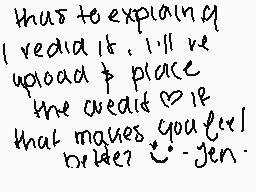 thas to explaing
I redid it. I'll re
upload & place
the credit ♡ if
that makes you feel
better? - Jen.